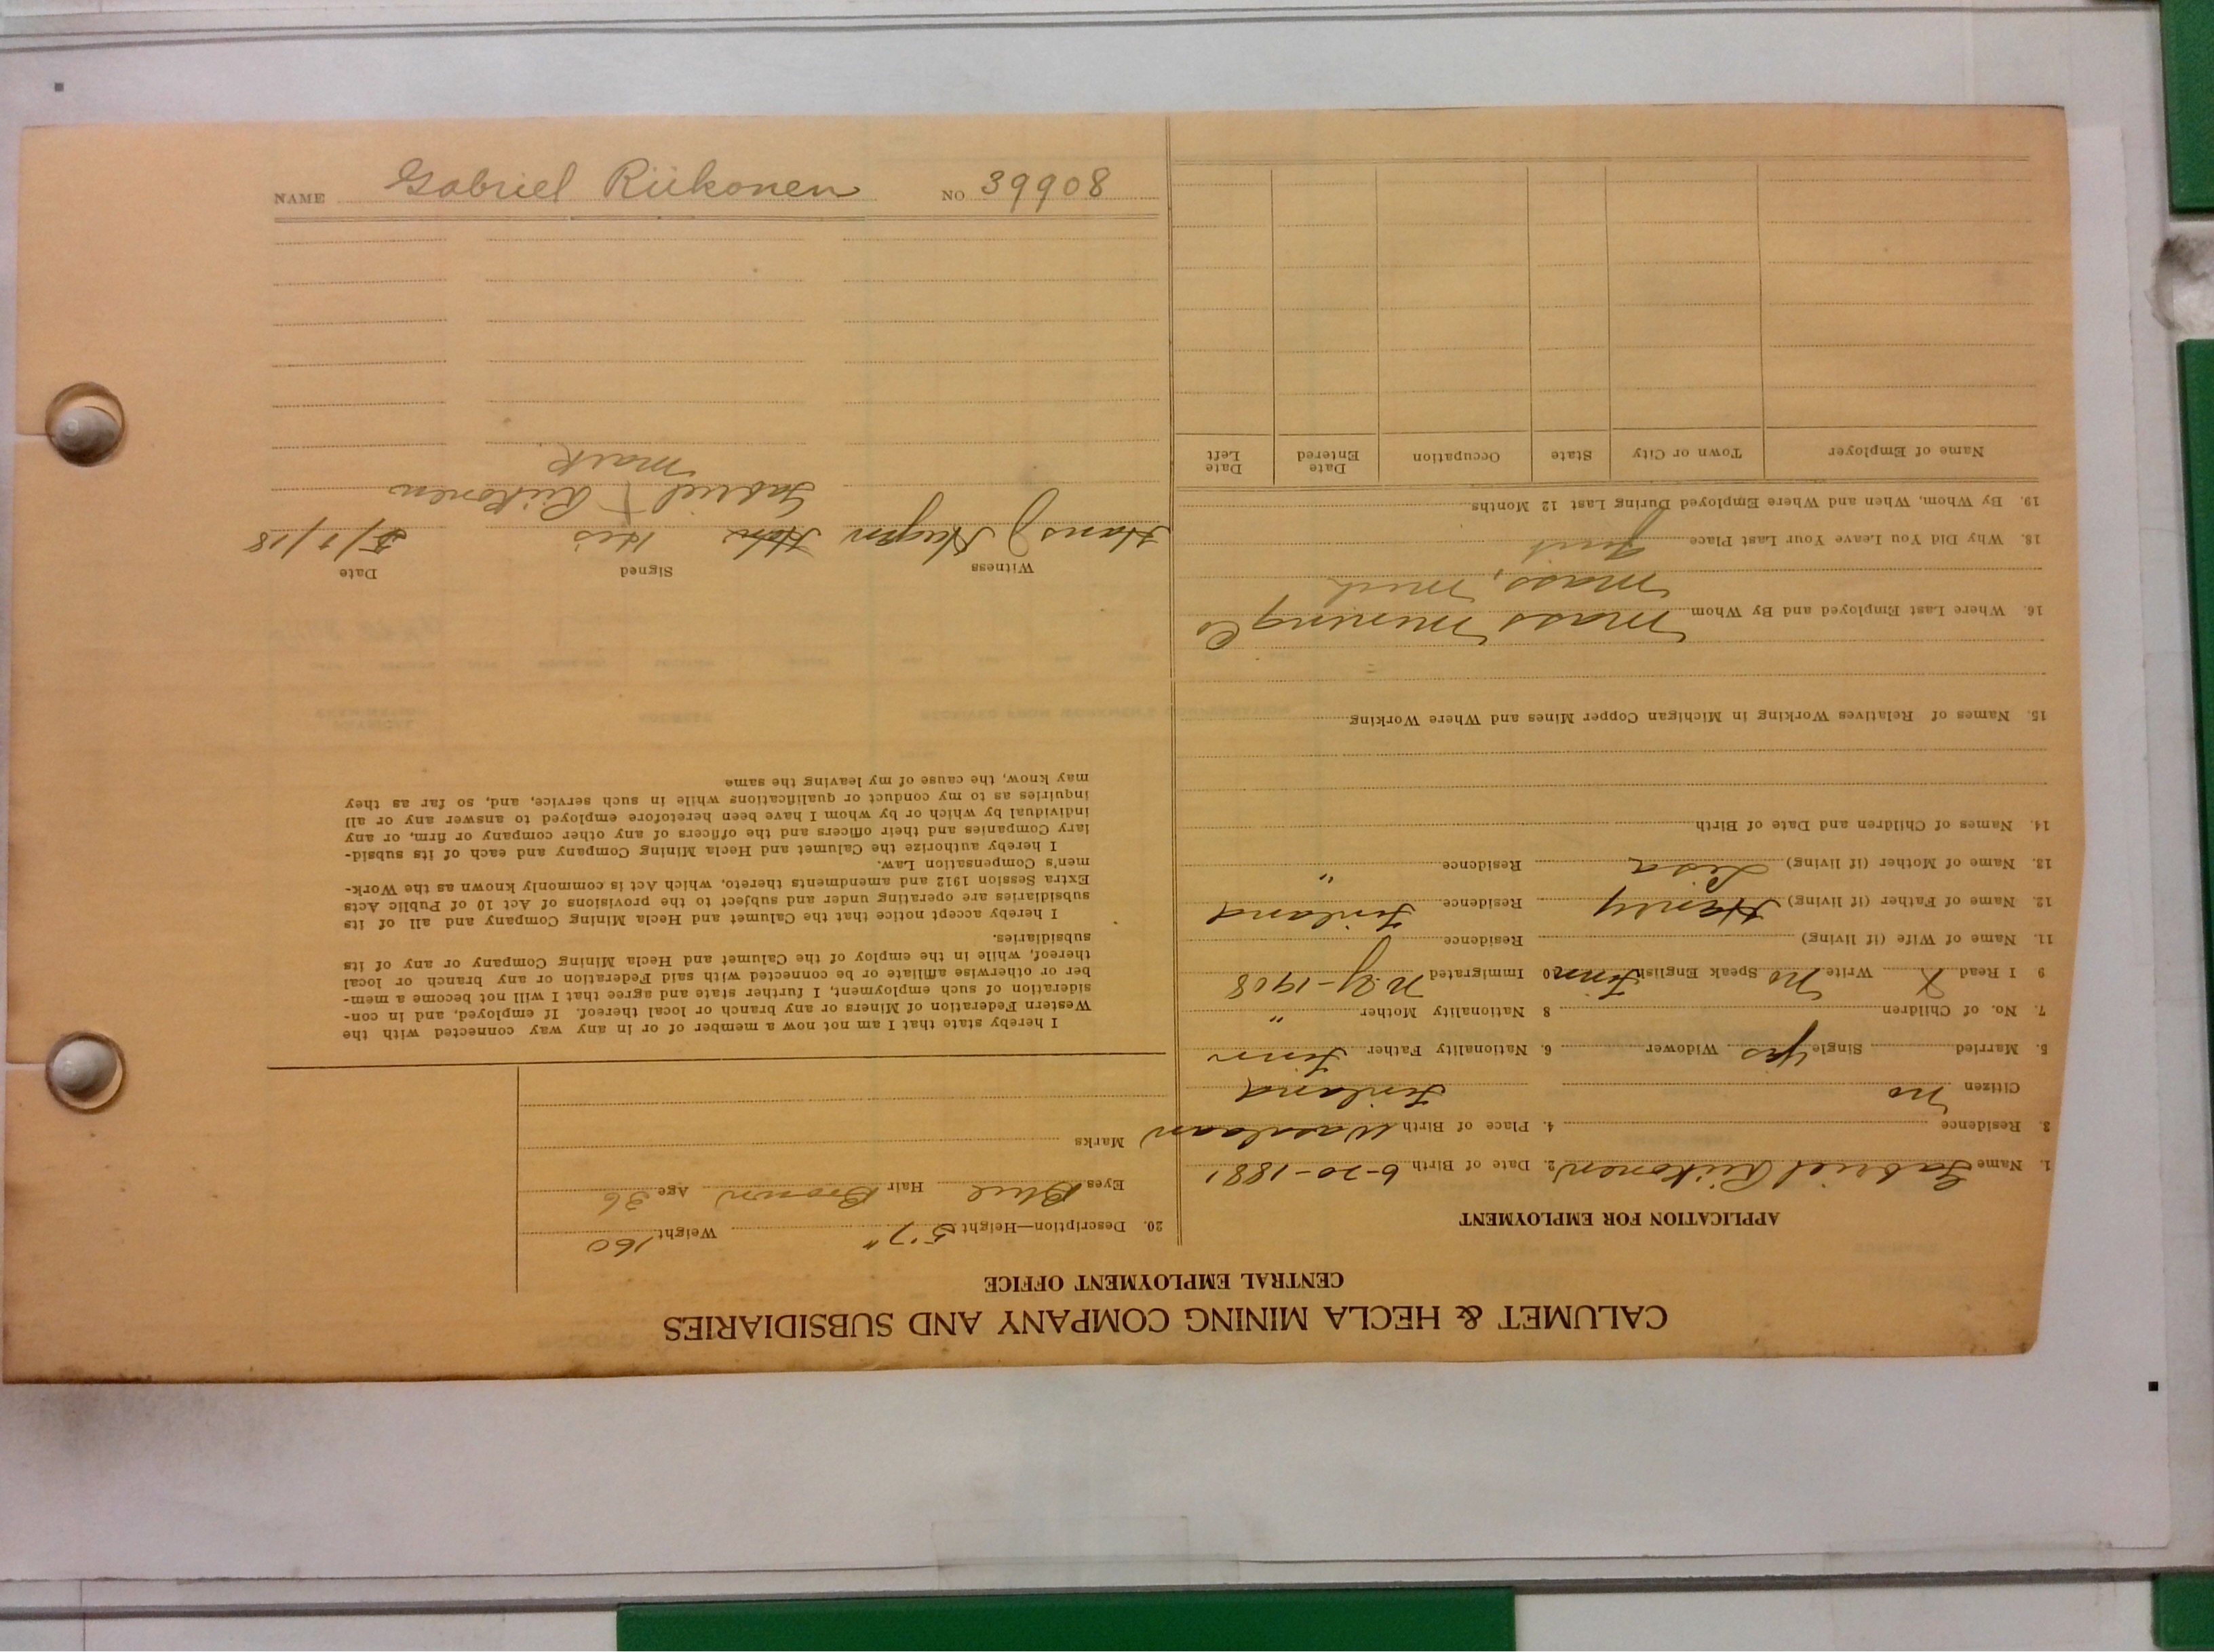 CALUMET & HECLA MINING COMPANY AND SUBSIDIARIES
CENTRAL EMPLOYMENT OFFICE
APPLICATION FOR EMPLOYMENT
1. Name Gabriel Riikonen 2. Date of Birth 6-20-1881
3. Residence 4. Place of Birth Wasalaan
Citizen no Finland
5. Married Single yes Widower 6. Nationality Father Finn
7. No. of Children 8 Nationality Mother "
9 I Read X Write no Speak English Finn 10 Immigrated N.Y-1908
11. Name of Wife (if living) Residence
12. Name of Father (if living) Henry Residence Finland
13. Name of Mother (if living) Lisa Residence "
14. Names of Children and Date of Birth
15. Names of Relatives Working in Michigan Copper Mines and Where Working
16. Where Last Employed and By Whom Mass Mining Co
Mass, Mich
18. Why Did You Leave Your Last Place Quit
19. By Whom, When and Where Employed During Last 12 Months
Name of Employer Town or City State Occupation Date Entered Date Left
20. Description—Height 5'7" Weight 160
Eyes Blue Hair Brown Age 36
Marks
I hereby state that I am not now a member of or in any way connected with the
Western Federation of Miners or any branch or local thereof. If employed, and in con-
sideration of such employment, I further state and agree that I will not become a mem-
ber or otherwise affiliate or be connected with said Federation or any branch or local
thereof, while in the employ of the Calumet and Hecla Mining Company or any of its
subsidiaries.
I hereby accept notice that the Calumet and Hecla Mining Company and all of its
subsidiaries are operating under and subject to the provisions of Act 10 of Public Acts
Extra Session 1912 and amendments thereto, which Act is commonly known as the Work-
men's Compensation Law.
I hereby authorize the Calumet and Hecla Mining Company and each of its subsid-
iary Companies and their officers and the officers of any other company or firm, or any
individual by which or by whom I have been heretofore employed to answer any or all
inquiries as to my conduct or qualifications while in such service, and, so far as they
may know, the cause of my leaving the same
Witness Signed Date
Hans J His 5/1/18
Gabriel X Riikonen
mark
NAME Gabriel Riikonen NO. 39908